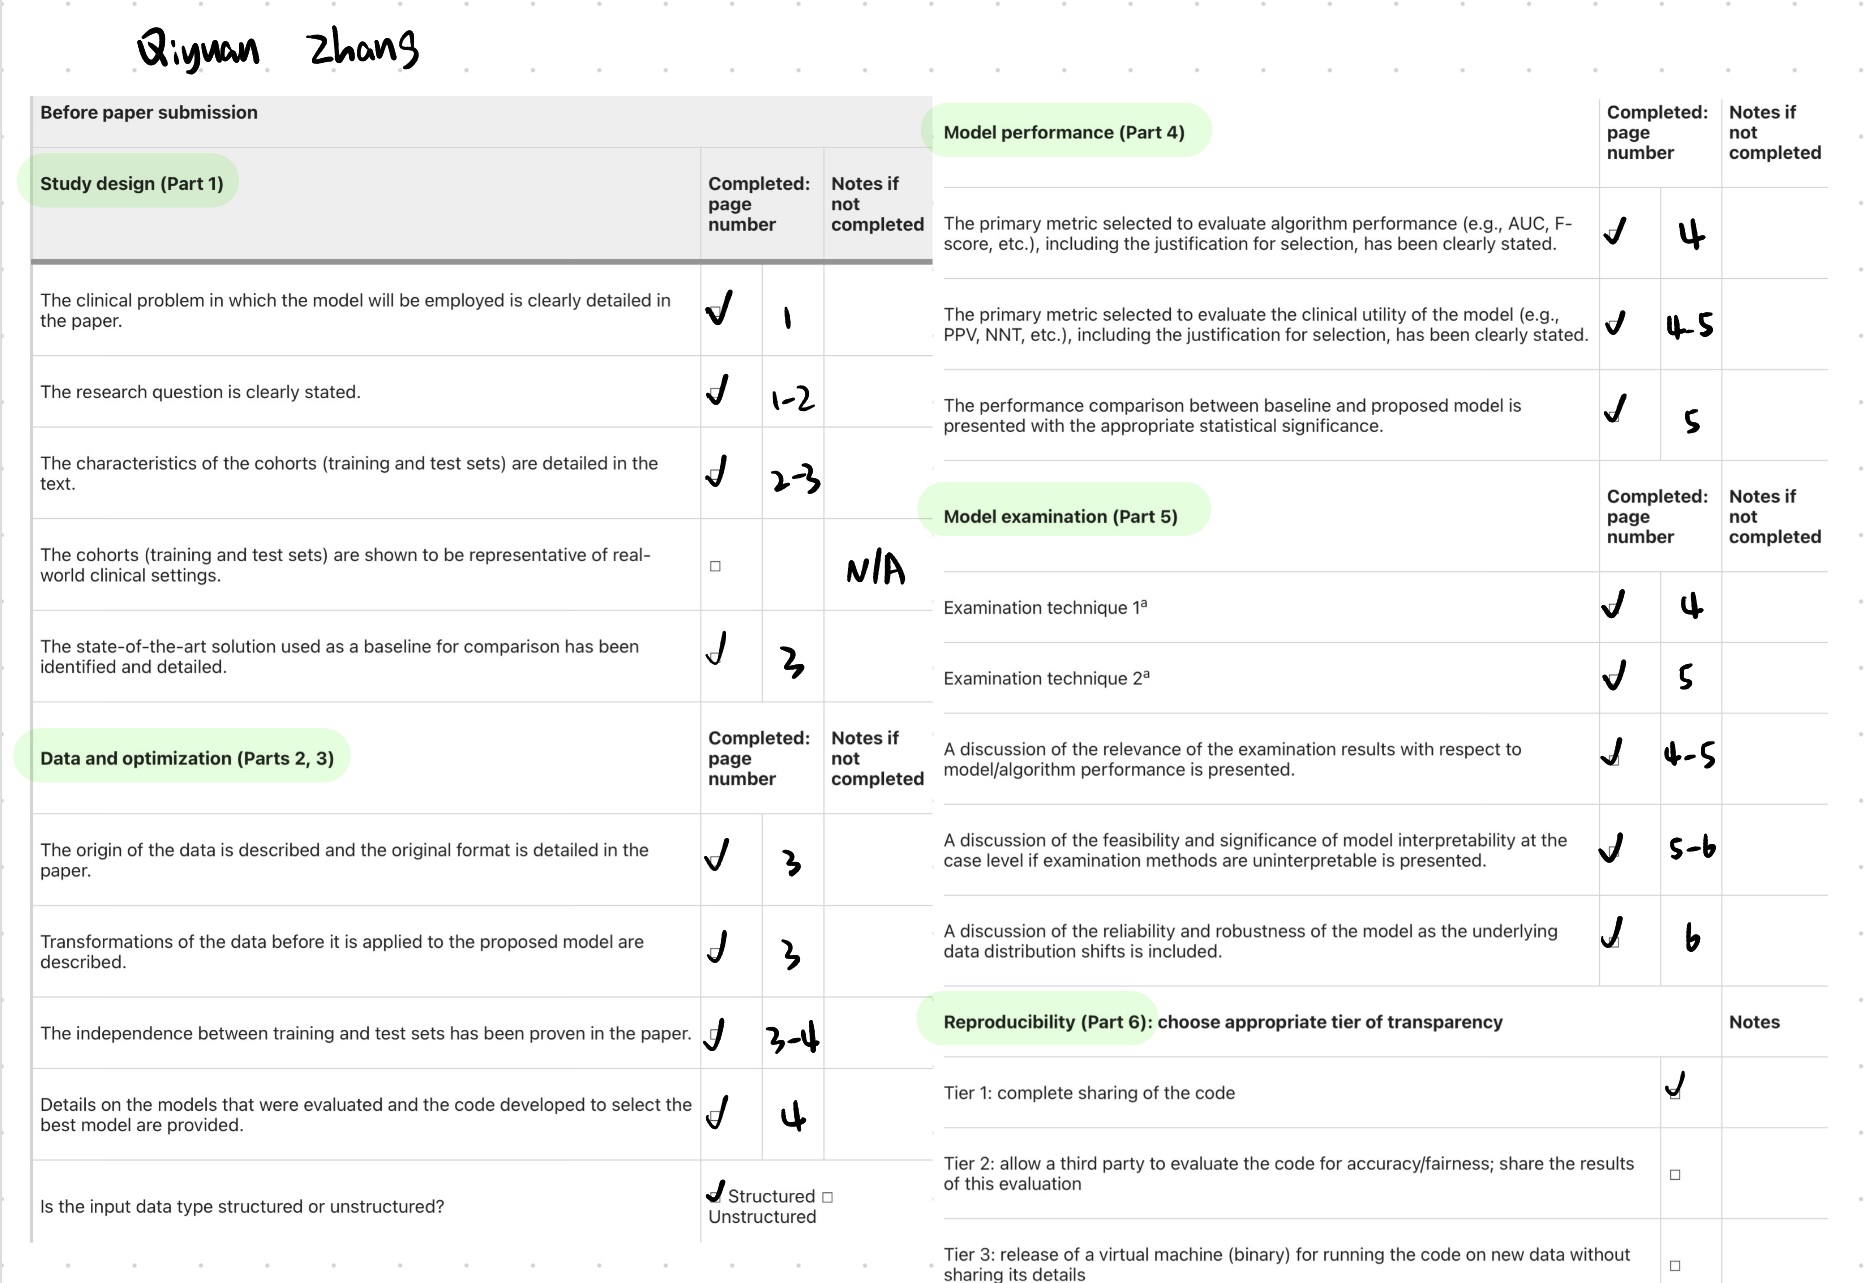 Qiyuan Zhang
Before paper submission
Study design (Part 1)
Completed:
page
number
Notes if
not
completed
The clinical problem in which the model will be employed is clearly detailed in
the paper.
✓ 1
The research question is clearly stated.
✓ 1-2
The characteristics of the cohorts (training and test sets) are detailed in the
text.
✓ 2-3
The cohorts (training and test sets) are shown to be representative of real-
world clinical settings.
☐ N/A
The state-of-the-art solution used as a baseline for comparison has been
identified and detailed.
✓ 3
Data and optimization (Parts 2, 3)
Completed:
page
number
Notes if
not
completed
The origin of the data is described and the original format is detailed in the
paper.
✓ 3
Transformations of the data before it is applied to the proposed model are
described.
✓ 3
The independence between training and test sets has been proven in the paper.
✓ 3-4
Details on the models that were evaluated and the code developed to select the
best model are provided.
✓ 4
Is the input data type structured or unstructured?
✓ Structured ☐
Unstructured
Model performance (Part 4)
Completed:
page
number
Notes if
not
completed
The primary metric selected to evaluate algorithm performance (e.g., AUC, F-
score, etc.), including the justification for selection, has been clearly stated.
✓ 4
The primary metric selected to evaluate the clinical utility of the model (e.g.,
PPV, NNT, etc.), including the justification for selection, has been clearly stated.
✓ 4-5
The performance comparison between baseline and proposed model is
presented with the appropriate statistical significance.
✓ 5
Model examination (Part 5)
Completed:
page
number
Notes if
not
completed
Examination technique 1ᵃ
✓ 4
Examination technique 2ᵃ
✓ 5
A discussion of the relevance of the examination results with respect to
model/algorithm performance is presented.
✓ 4-5
A discussion of the feasibility and significance of model interpretability at the
case level if examination methods are uninterpretable is presented.
✓ 5-6
A discussion of the reliability and robustness of the model as the underlying
data distribution shifts is included.
✓ 6
Reproducibility (Part 6): choose appropriate tier of transparency
Notes
Tier 1: complete sharing of the code
✓
Tier 2: allow a third party to evaluate the code for accuracy/fairness; share the results
of this evaluation
☐
Tier 3: release of a virtual machine (binary) for running the code on new data without
sharing its details
☐